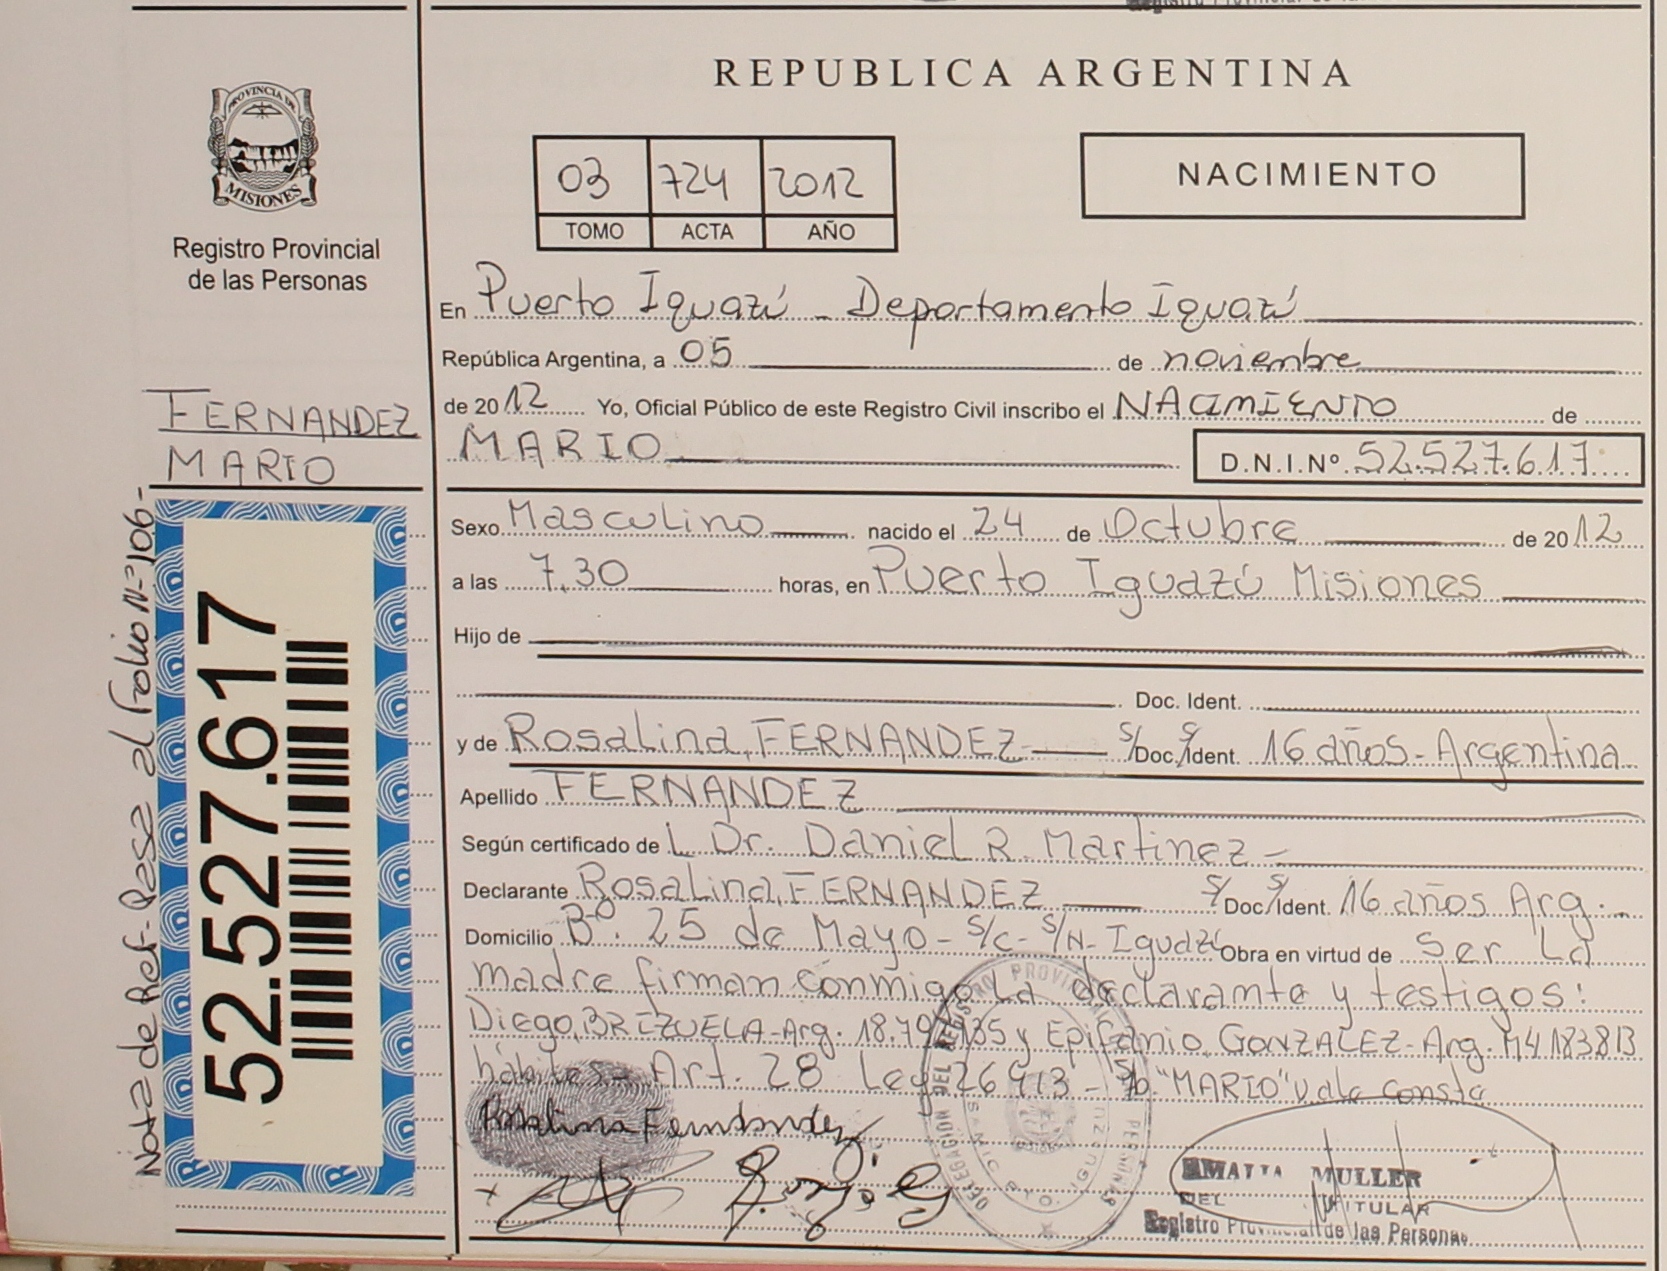 REPUBLICA ARGENTINA
PROVINCIA DE
MISIONES
Registro Provincial
de las Personas
03 724 2012
TOMO ACTA AÑO
NACIMIENTO
En Puerto Iguazú - Departamento Iguazú
República Argentina, a 05 de noviembre
de 2012 Yo, Oficial Público de este Registro Civil inscribo el NACIMIENTO de
MARIO D.N.I.Nº 52.527.617
FERNANDEZ
MARIO
Nota de Ref.- Pasa al Folio Nº 106-
52.527.617
Sexo Masculino nacido el 24 de Octubre de 2012
a las 7.30 horas, en Puerto Iguazú Misiones
Hijo de
Doc. Ident.
y de Rosalina, FERNANDEZ S/Doc. S/Ident. 16 años - Argentina
Apellido FERNANDEZ
Según certificado de L Dr. Daniel R. Martinez -
Declarante Rosalina, FERNANDEZ S/Doc S/Ident. 16 años Arg.
Domicilio Bº. 25 de Mayo - S/C - S/N - Iguazú Obra en virtud de ser La
madre firman conmigo La declarante y testigos:
Diego, BRIZUELA - Arg. y Epifanio, GONZALEZ - Arg. M4183813
hábiles - Art. 28 Ley 26413 - "MARIO" vale consta
Rosalina Fernandez
MULLER
TITULAR
Registro Provincial de las Personas